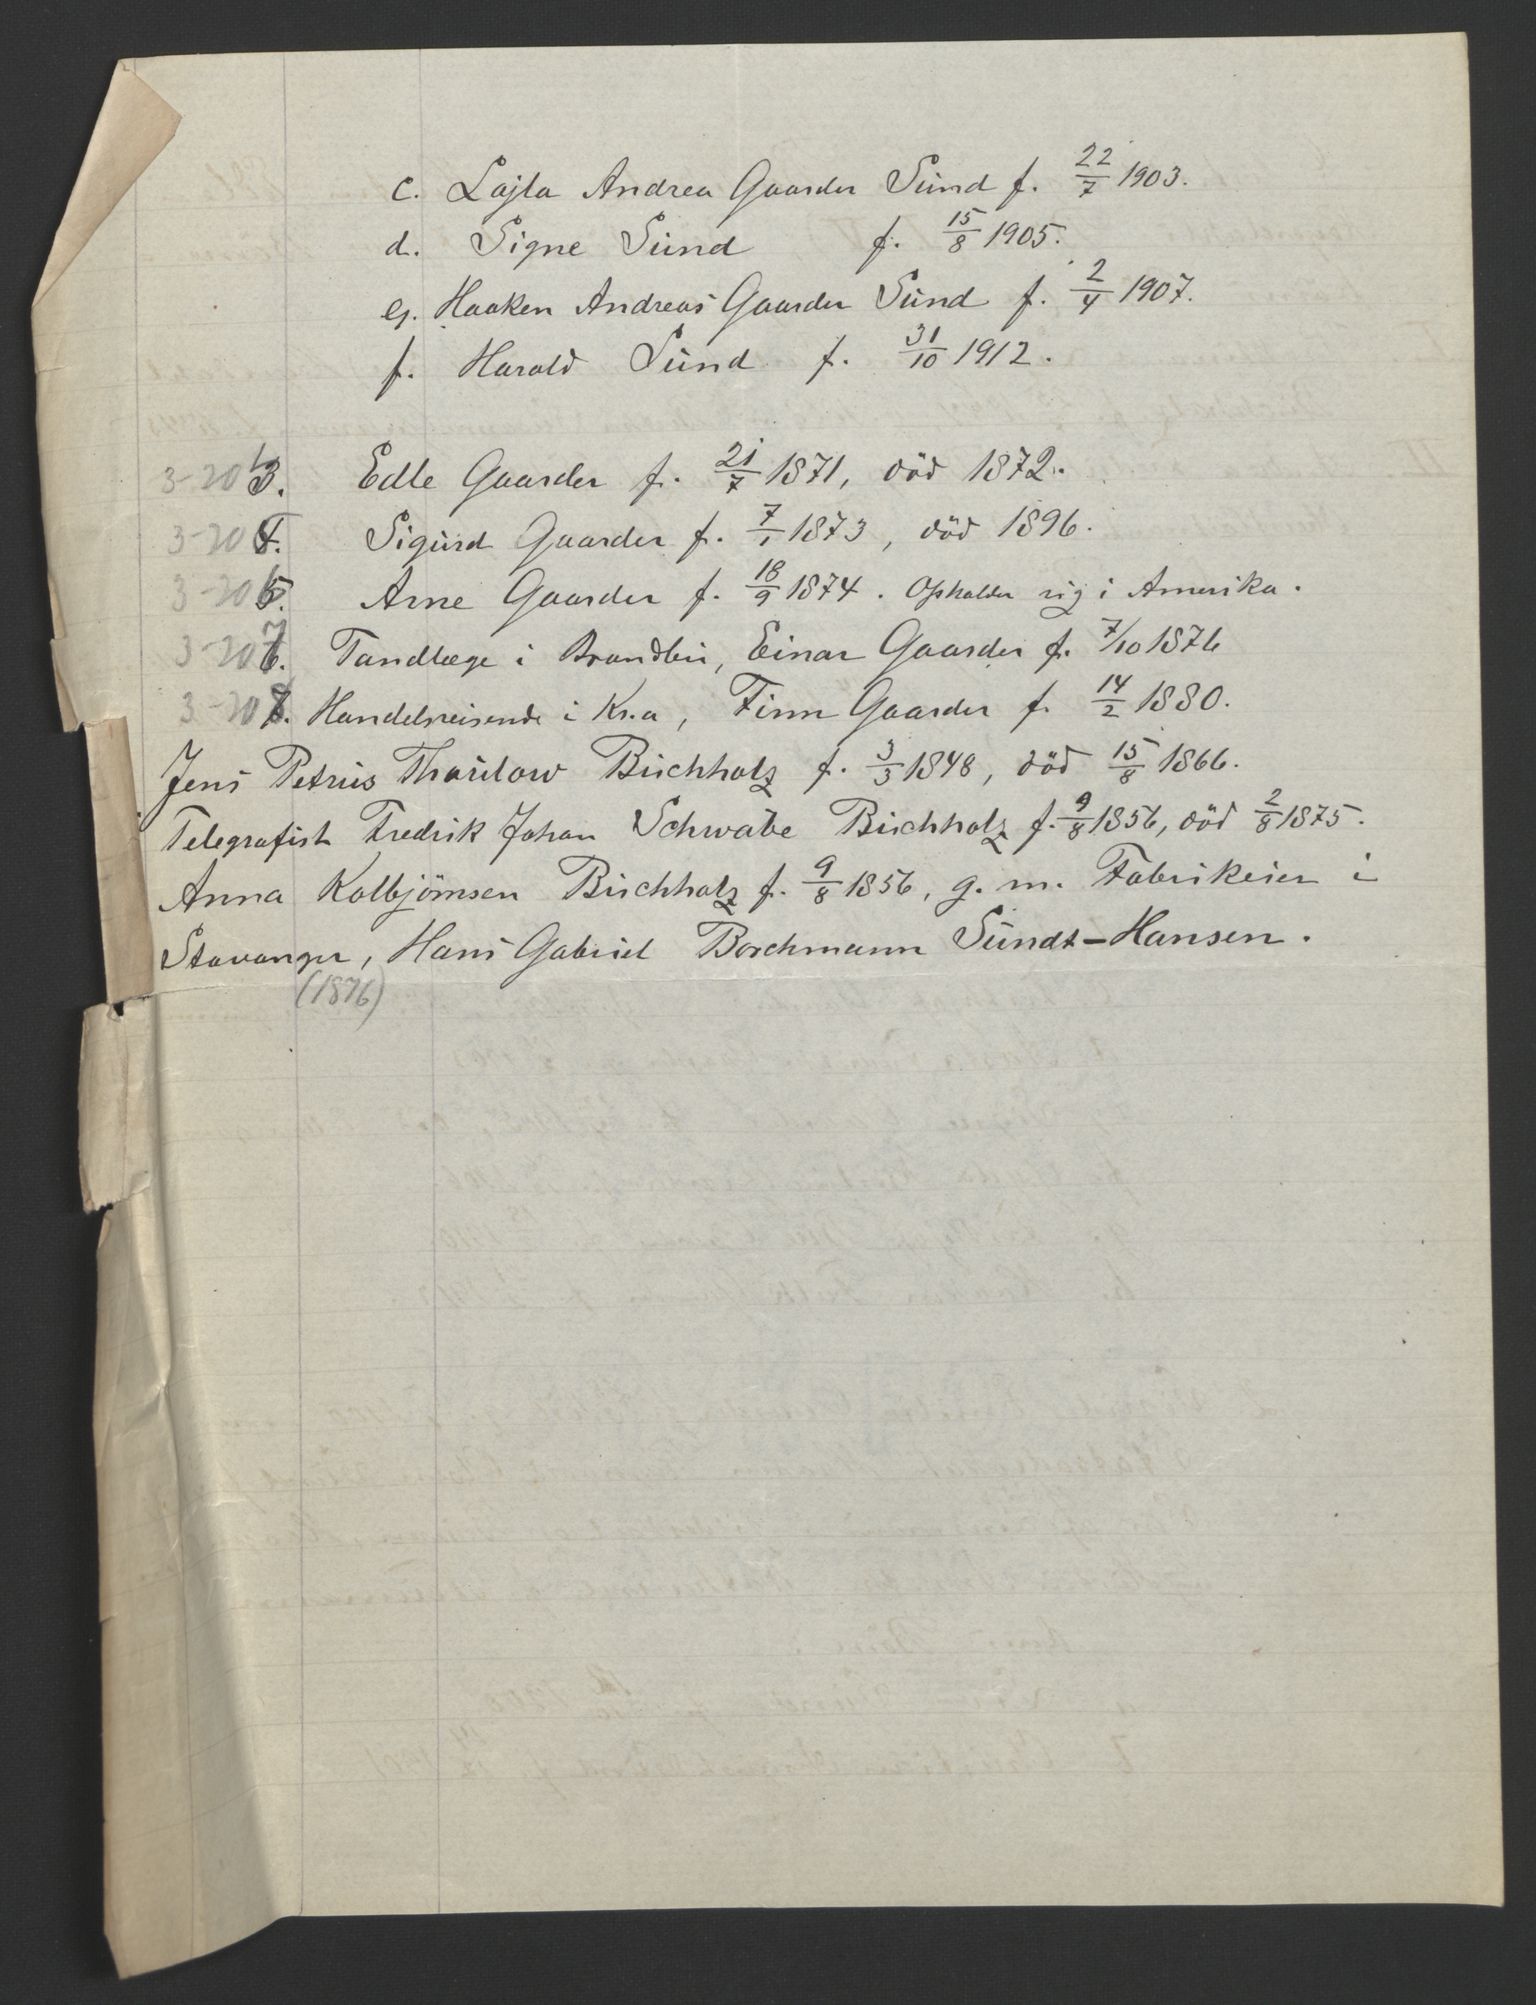 c. Lajla Andrea Gaarder Sund f. 22/7 1903.
d. Signe Sund f. 15/8 1905.
e. Haaken Andreas Gaarder Sund f. 2/4 1907.
f. Harald Sund f. 31/10 1912.
3. Edle Gaarder f. 21/7 1871, död 1872.
4. Sigurd Gaarder f. 7/1 1873, död 1896.
5. Arne Gaarder f. 18/9 1874. Opholder sig i Amerika.
6. Tandlæge i Brandbu, Einar Gaarder f. 7/10 1876
7. Handelsreisende i Kr.a, Finn Gaarder f. 14/2 1880.
Jens Petrus Thaulow Buchholz f. 3/3 1848, död 15/8 1866.
Telegrafist Fredrik Johan Schwabe Buchholz f. 9/8 1856, död 2/8 1875.
Anna Kolbjörnsen Buchholz f. 9/8 1856, g. m. Fabrikeier i
Stavanger, Hans Gabriel Borchmann Sundt-Hansen.
(1876)